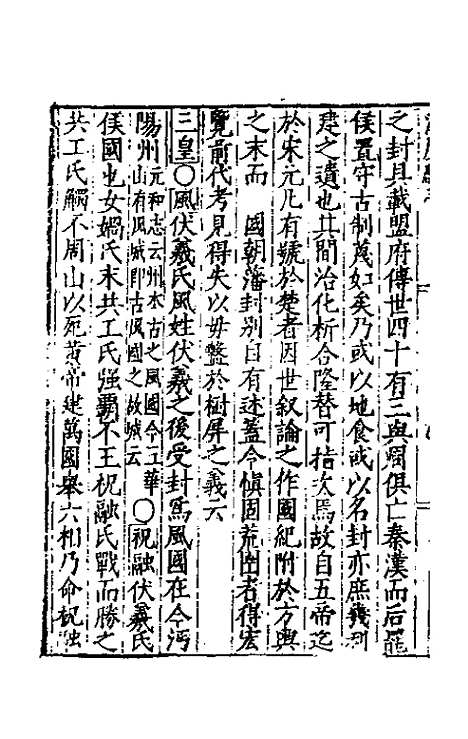 之封具載盟府傳世四十有三與周俱亡秦漢而后罷
侯置守古制蔑如矣乃或以地食或以名封亦庶幾利
建之遺也其間治化析合隆替可指次焉故自五帝迄
於宋元凡有號於楚者因世叙論之作國紀附於方輿
之末而 國朝藩封別自有述蓋今慎固荒圉者得宏
覽前代考見得失以毋盭於樹屏之義云
三皇〇風伏羲氏風姓伏羲之後受封爲風國在今沔
陽州元和志云州本古之風國今工華山有風城即古風國之故城云〇祝融伏羲氏
侯國也女媧氏末共工氏強霸不王祝融氏戰而勝之
共工氏觸不周山以死黃帝建萬國舉六相乃命祝融